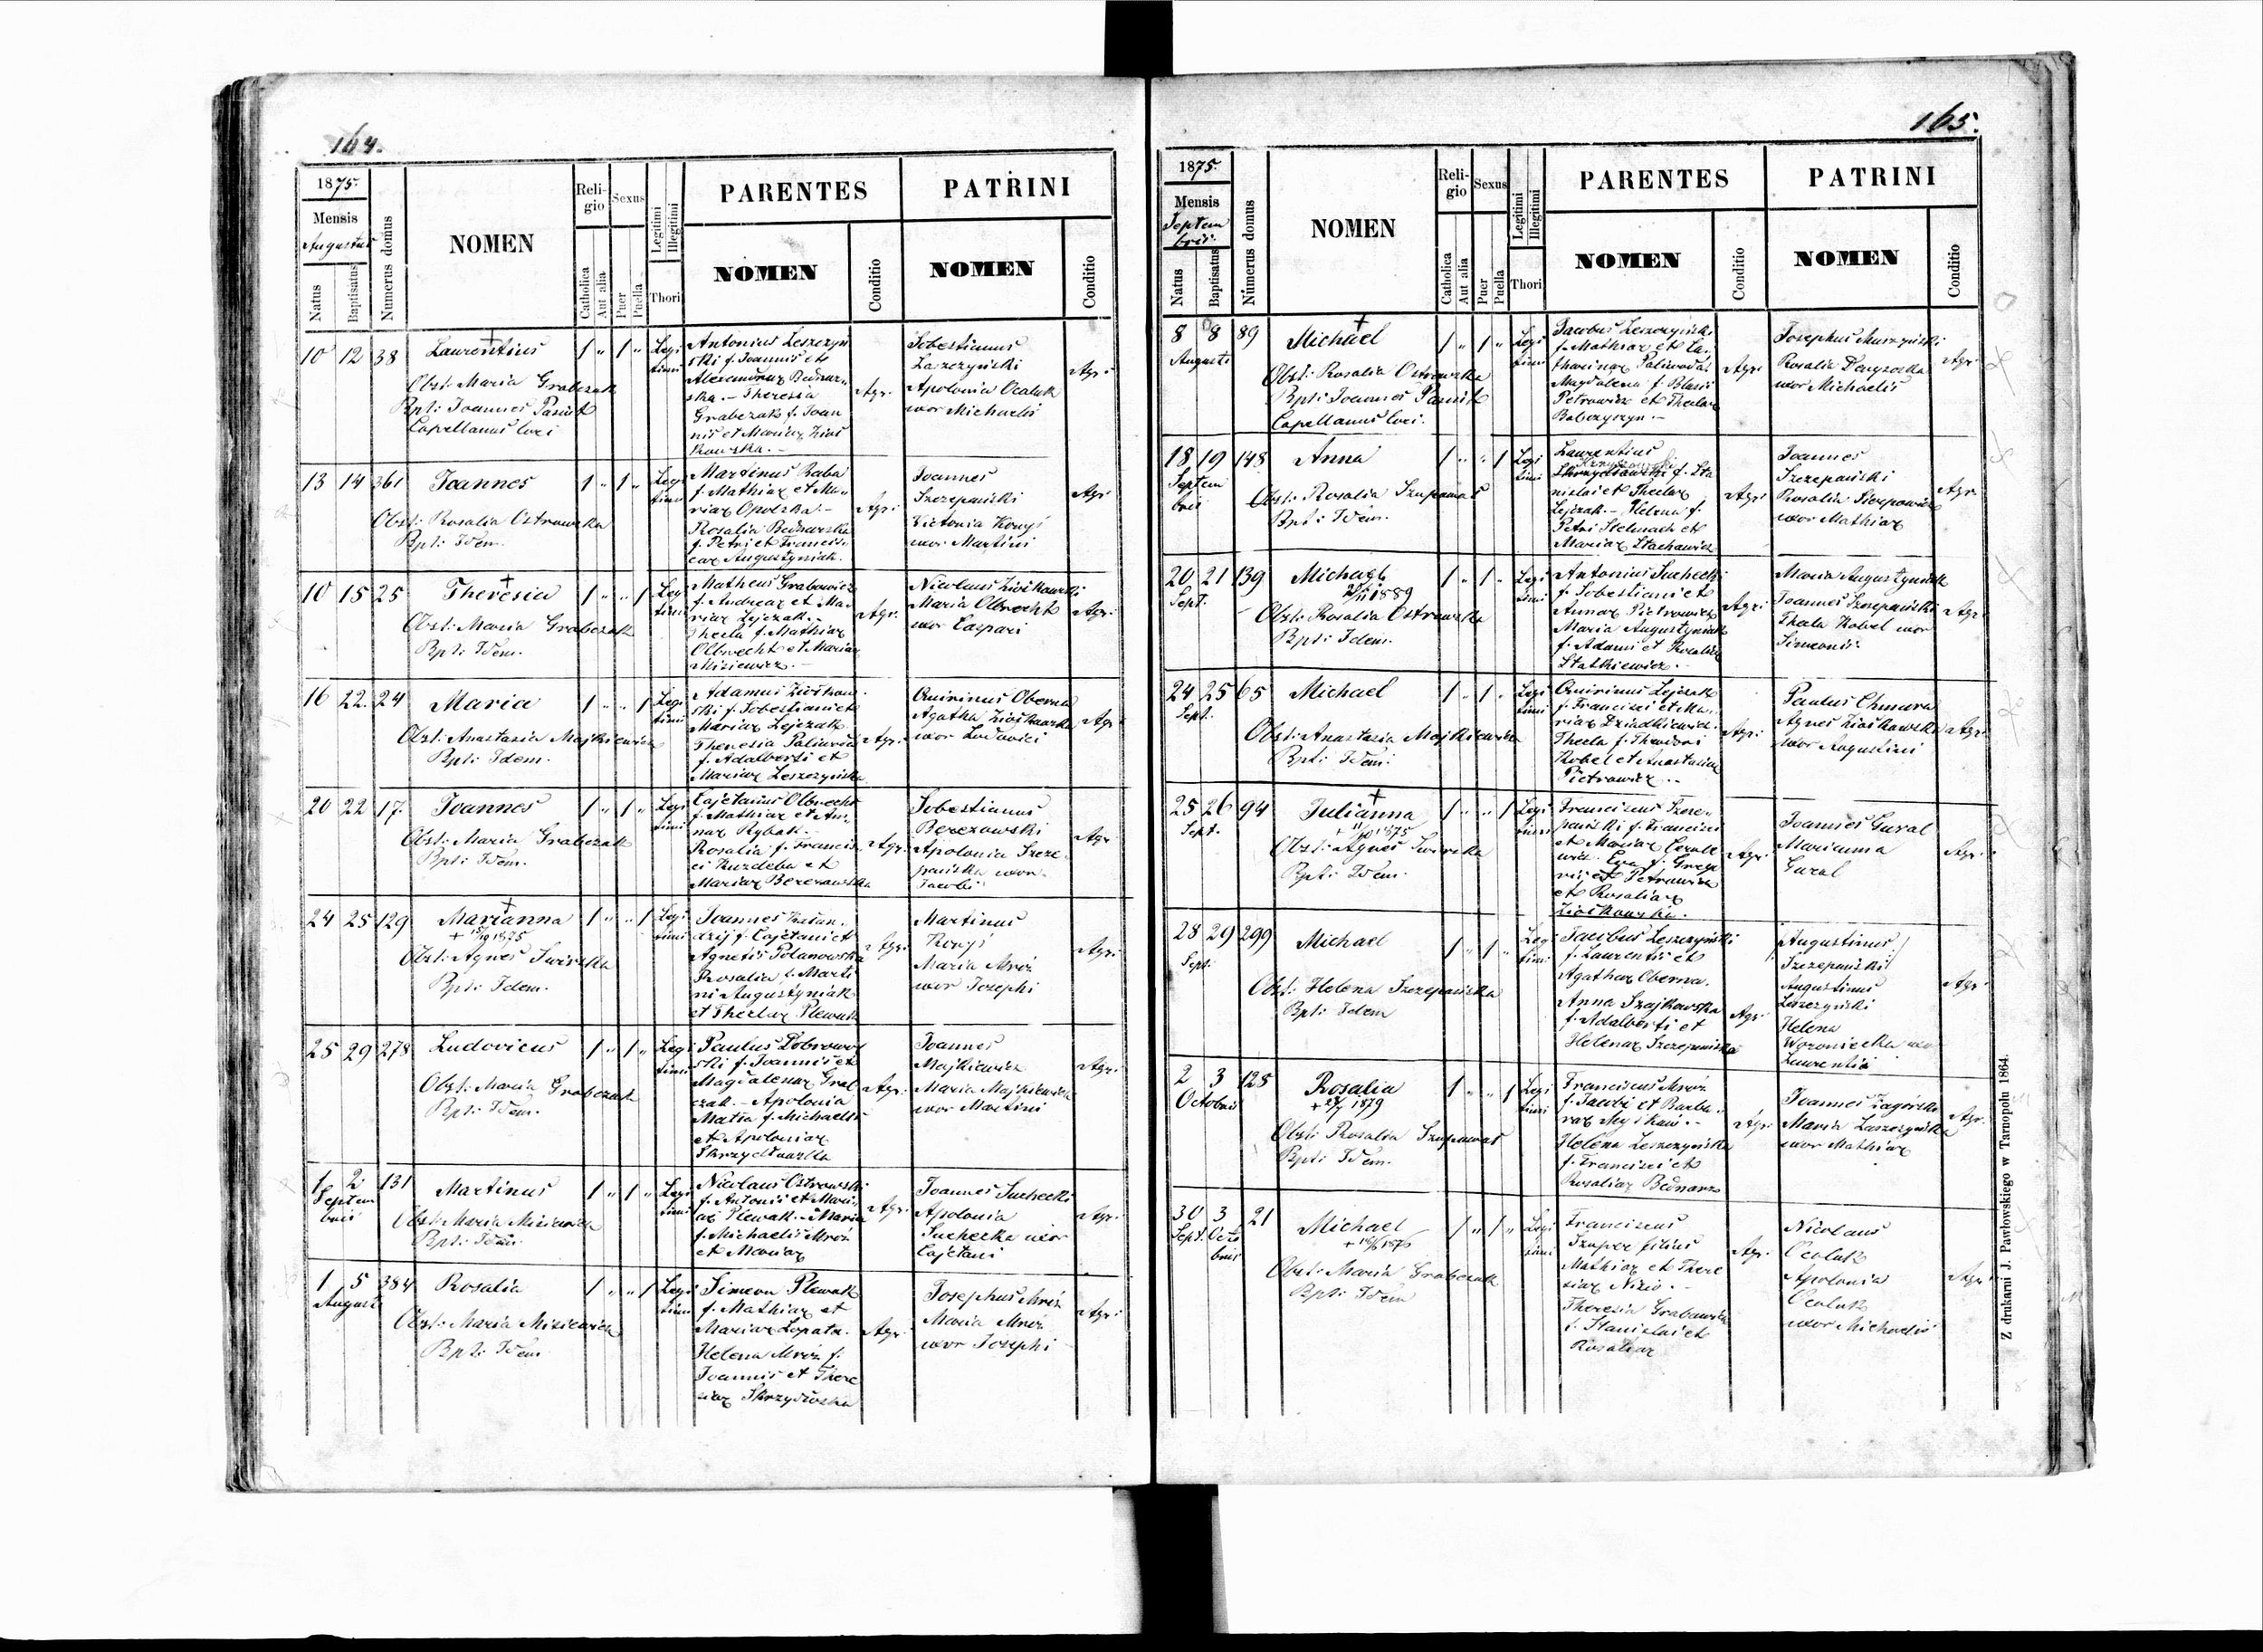 164.
1875.
Mensis
Augustus
Natus
Baptisatus
Numerus domus
NOMEN
Religio
Catholica
Aut alia
Sexus
Puer
Puella
Legitimi
Illegitimi
Thori
PARENTES
NOMEN
Conditio
PATRINI
NOMEN
Conditio
10 12 38
Laurentius
Obst: Maria Grabczak
Bpt: Joannes Pasiut
Capellanus loci
1 „ 1 „
Legi
timi
Antonius Leszczyń
ski f. Joannis et
Alexandrae Bednar
ska. - Theresia
Grabczak f. Joan
nis et Mariae Ziół
kowska. -
Agri.
Sobestianus
Leszczyński
Apolonia Ocaluk
uxor Michaelis
Agri
13 14 361
Joannes
Obst: Rosalia Ostrowska
Bpt: Idem.
1 „ 1 „
Legi
timi
Martinus Baba
f. Mathiae et Ma
riae Opolska. -
Rosalia Bednarska
f. Petri et Francis
cae Augustyniak.
Agri
Joannes
Szczepański
Victoria Konyś
uxor Martini
Agri
10 15 25
Theresia
Obst: Maria Grabczak
Bpt: Idem.
1 „ „ 1
Legi
timi
Matheus Grabowicz
f. Andreae et Ma
riae Lejczak. -
Thecla f. Mathiae
Olbrecht et Mariae
Misiewicz. -
Agri.
Nicolaus Ziółkowski
Maria Olbrecht
uxor Caspari
Agri
16 22. 24
Maria
Obst: Anastasia Majkiewicz
Bpt: Idem.
1 „ „ 1
Legi
timi
Adamus Ziółkow
ski f. Sobestiani et
Mariae Lejczak
Theresia Paliwoda
f. Adalberti et
Mariae Leszczyńska
Agri.
Quirinus Oberna
Agatha Ziółkowska
uxor Ludovici
Agri
20 22 17.
Joannes
Obst: Maria Grabczak
Bpt: Idem.
1 „ 1 „
Legi
timi
Cajetanus Olbrecht
f. Mathiae et An
nae Rybak. -
Rosalia f. Francis
ci Kuzdeba et
Mariae Berezowska
Agri.
Sobestianus
Berezowski
Apolonia Szcze
pańska uxor
Jacobi
Agr
24 25 129
Marianna
Obst: Agnes Swirska
Bpt: Idem.
1 „ „ 1
Legi
timi
Joannes
dzij f. Cajetani et
Agnetis Polanowska
Rosalia f. Marti
ni Augustyniak
et Theclae Plewak
Agr.
Martinus
Konyś
Maria Mróz
uxor Josephi
Agri
25 29 278
Ludovicus
Obst: Maria Grabczak
Bpt: Idem.
1 „ 1 „
Legi
timi
Paulus Dobrowol
ski f. Joannis et
Magdalenae Grab
czak. - Apolonia
Matia f. Michaelis
et Apoloniae
Skrzydłowska
Agr.
Joannes
Majkiewicz
Maria Majkiewicz
uxor Martini
Agri
1 2 131
Septem
bris
Martinus
Obst: Maria Misiewicz
Bpt: Idem.
1 „ 1 „
Legi
timi
Nicolaus Ostrowski
f. Antonii et Mari
ae Plewak. - Maria
f. Michaelis Mróz
et Mariae
Agr.
Joannes Suchecki
Apolonia
Suchecka uxor
Cajetani
Agri
1 5 384
Augusti
Rosalia
Obst: Maria Misiewicz
Bpt: Idem
1 „ „ 1
Legi
timi
Simeon Plewak
f. Mathiae et
Mariae Łopata.
Helena Mróz f.
Joannis et There
siae Skrzydłowska
Agr.
Josephus Mróz
Maria Mróz
uxor Josephi
Agri
165.
1875.
Mensis
Septem
bris
Natus
Baptisatus
Numerus domus
NOMEN
Religio
Catholica
Aut alia
Sexus
Puer
Puella
Legitimi
Illegitimi
Thori
PARENTES
NOMEN
Conditio
PATRINI
NOMEN
Conditio
8 8 89
Augusti
Michael
Obst: Rosalia Ostrowska
Bpt: Joannes Pasiut
Capellanus loci.
1 „ 1 „
Legi
timi
Jacobus Leszczyński
f. Mathiae et Ca
tharinae Paliwoda
Magdalena f. Blasii
Petrowicz et Theclae
Babczyszyn. -
Agri
Josephus Muszyński
Rosalia Denysocka
uxor Michaelis
Agri
18 19 148
Septem
bris
Anna
Obst: Rosalia Szupernat
Bpt: Idem.
1 „ „ 1
Legi
timi
Laurentius
f. Sta
nislai et Theclae
Lejczak. - Helena f.
Petri Stelmach et
Mariae Stachowicz
Agri
Joannes
Szczepański
Rosalia
uxor Mathiae
Agr.
20 21 139
Sept.
Michael
1889
Obst: Rosalia Ostrowska
Bpt: Idem.
1 „ 1 „
Legi
timi
Antonius Suchecki
f. Sobestiani et
Annae Pietrowicz
Maria Augustyniak
f. Adami et Rosaliae
Statkiewicz. -
Agri
Maria Augustyniak
Joannes Szczepański
Thecla Kobel uxor
Simeonis
Agri
24 25 65
Sept.
Michael
Obst: Anastasia Majkiewicz
Bpt: Idem.
1 „ 1 „
Legi
timi
Quirinus Lejczak
f. Francisci et Ma
riae Dziadkiewicz.
Thecla f. Theodori
Kobel et Anastasiae
Pietrowicz. -
Agri
Paulus Chmura
Agnes Ziółkowska
uxor Augustini
Agri
25 26 94
Sept.
Julianna
Obst: Agnes Swirska
Bpt: Idem.
1 „ „ 1
Legi
timi
Franciscus Szcze
pański f. Francisci
et Mariae
Eva f. Grego
rii et Petrowicz
et Rosaliae
Ziółkowski.
Agri
Joannes Gural
Marianna
Gural
Agri
28 29 299
Sept.
Michael
Obst: Helena Szczepańska
Bpt: Idem
1 „ 1 „
Legi
timi
Jacobus Leszczyński
f. Laurentii et
Agathae Oberna.
Anna Szajkowska
f. Adalberti et
Helenae Szczepańska
Agr.
Augustinus
Szczepański
Augustinus
Leszczyński
Helena
Woroniecka uxor
Laurentii
Agr
2 3 125
Octobris
Rosalia
1879
Obst: Rosalia Szupernat
Bpt: Idem.
1 „ „ 1
Legi
timi
Franciscus Mróz
f. Jacobi et Barba
rae
Helena Leszczyńska
f. Francisci et
Rosaliae Bednarz
Agri
Joannes Zagórski
Maria Leszczyńska
uxor Mathiae
Agr.
30 3 21
Sept. Octo
bris
Michael
Obst: Maria Grabczak
Bpt: Idem
1 „ 1 „
Legi
timi
Franciscus
Szuper filius
Mathiae et There
siae
Theresia Grabowicz
f. Stanislai et
Rosaliae
Agr.
Nicolaus
Ocaluk
Apolonia
Ocaluk
uxor Michaelis
Agr
Z drukarni J. Pawłowskiego w Tarnopolu 1864.